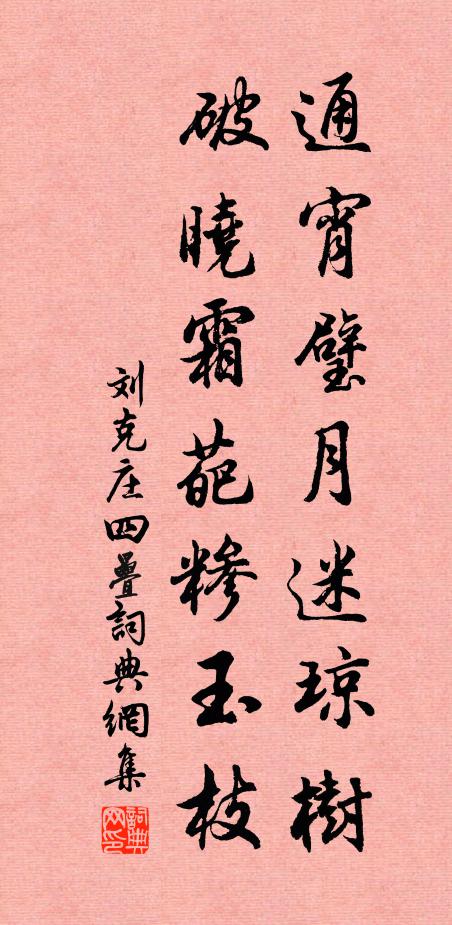 通宵璧月迷琼樹
破曉霜葩糝玉枝
刘克庄四疊詞典網集
詞典网印